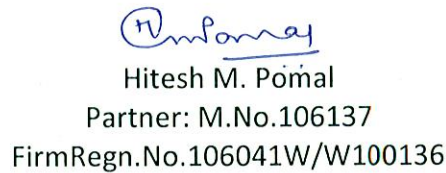 Hitesh M. Pomal
Partner: M.No.106137
FirmRegn.No.106041W/W100136